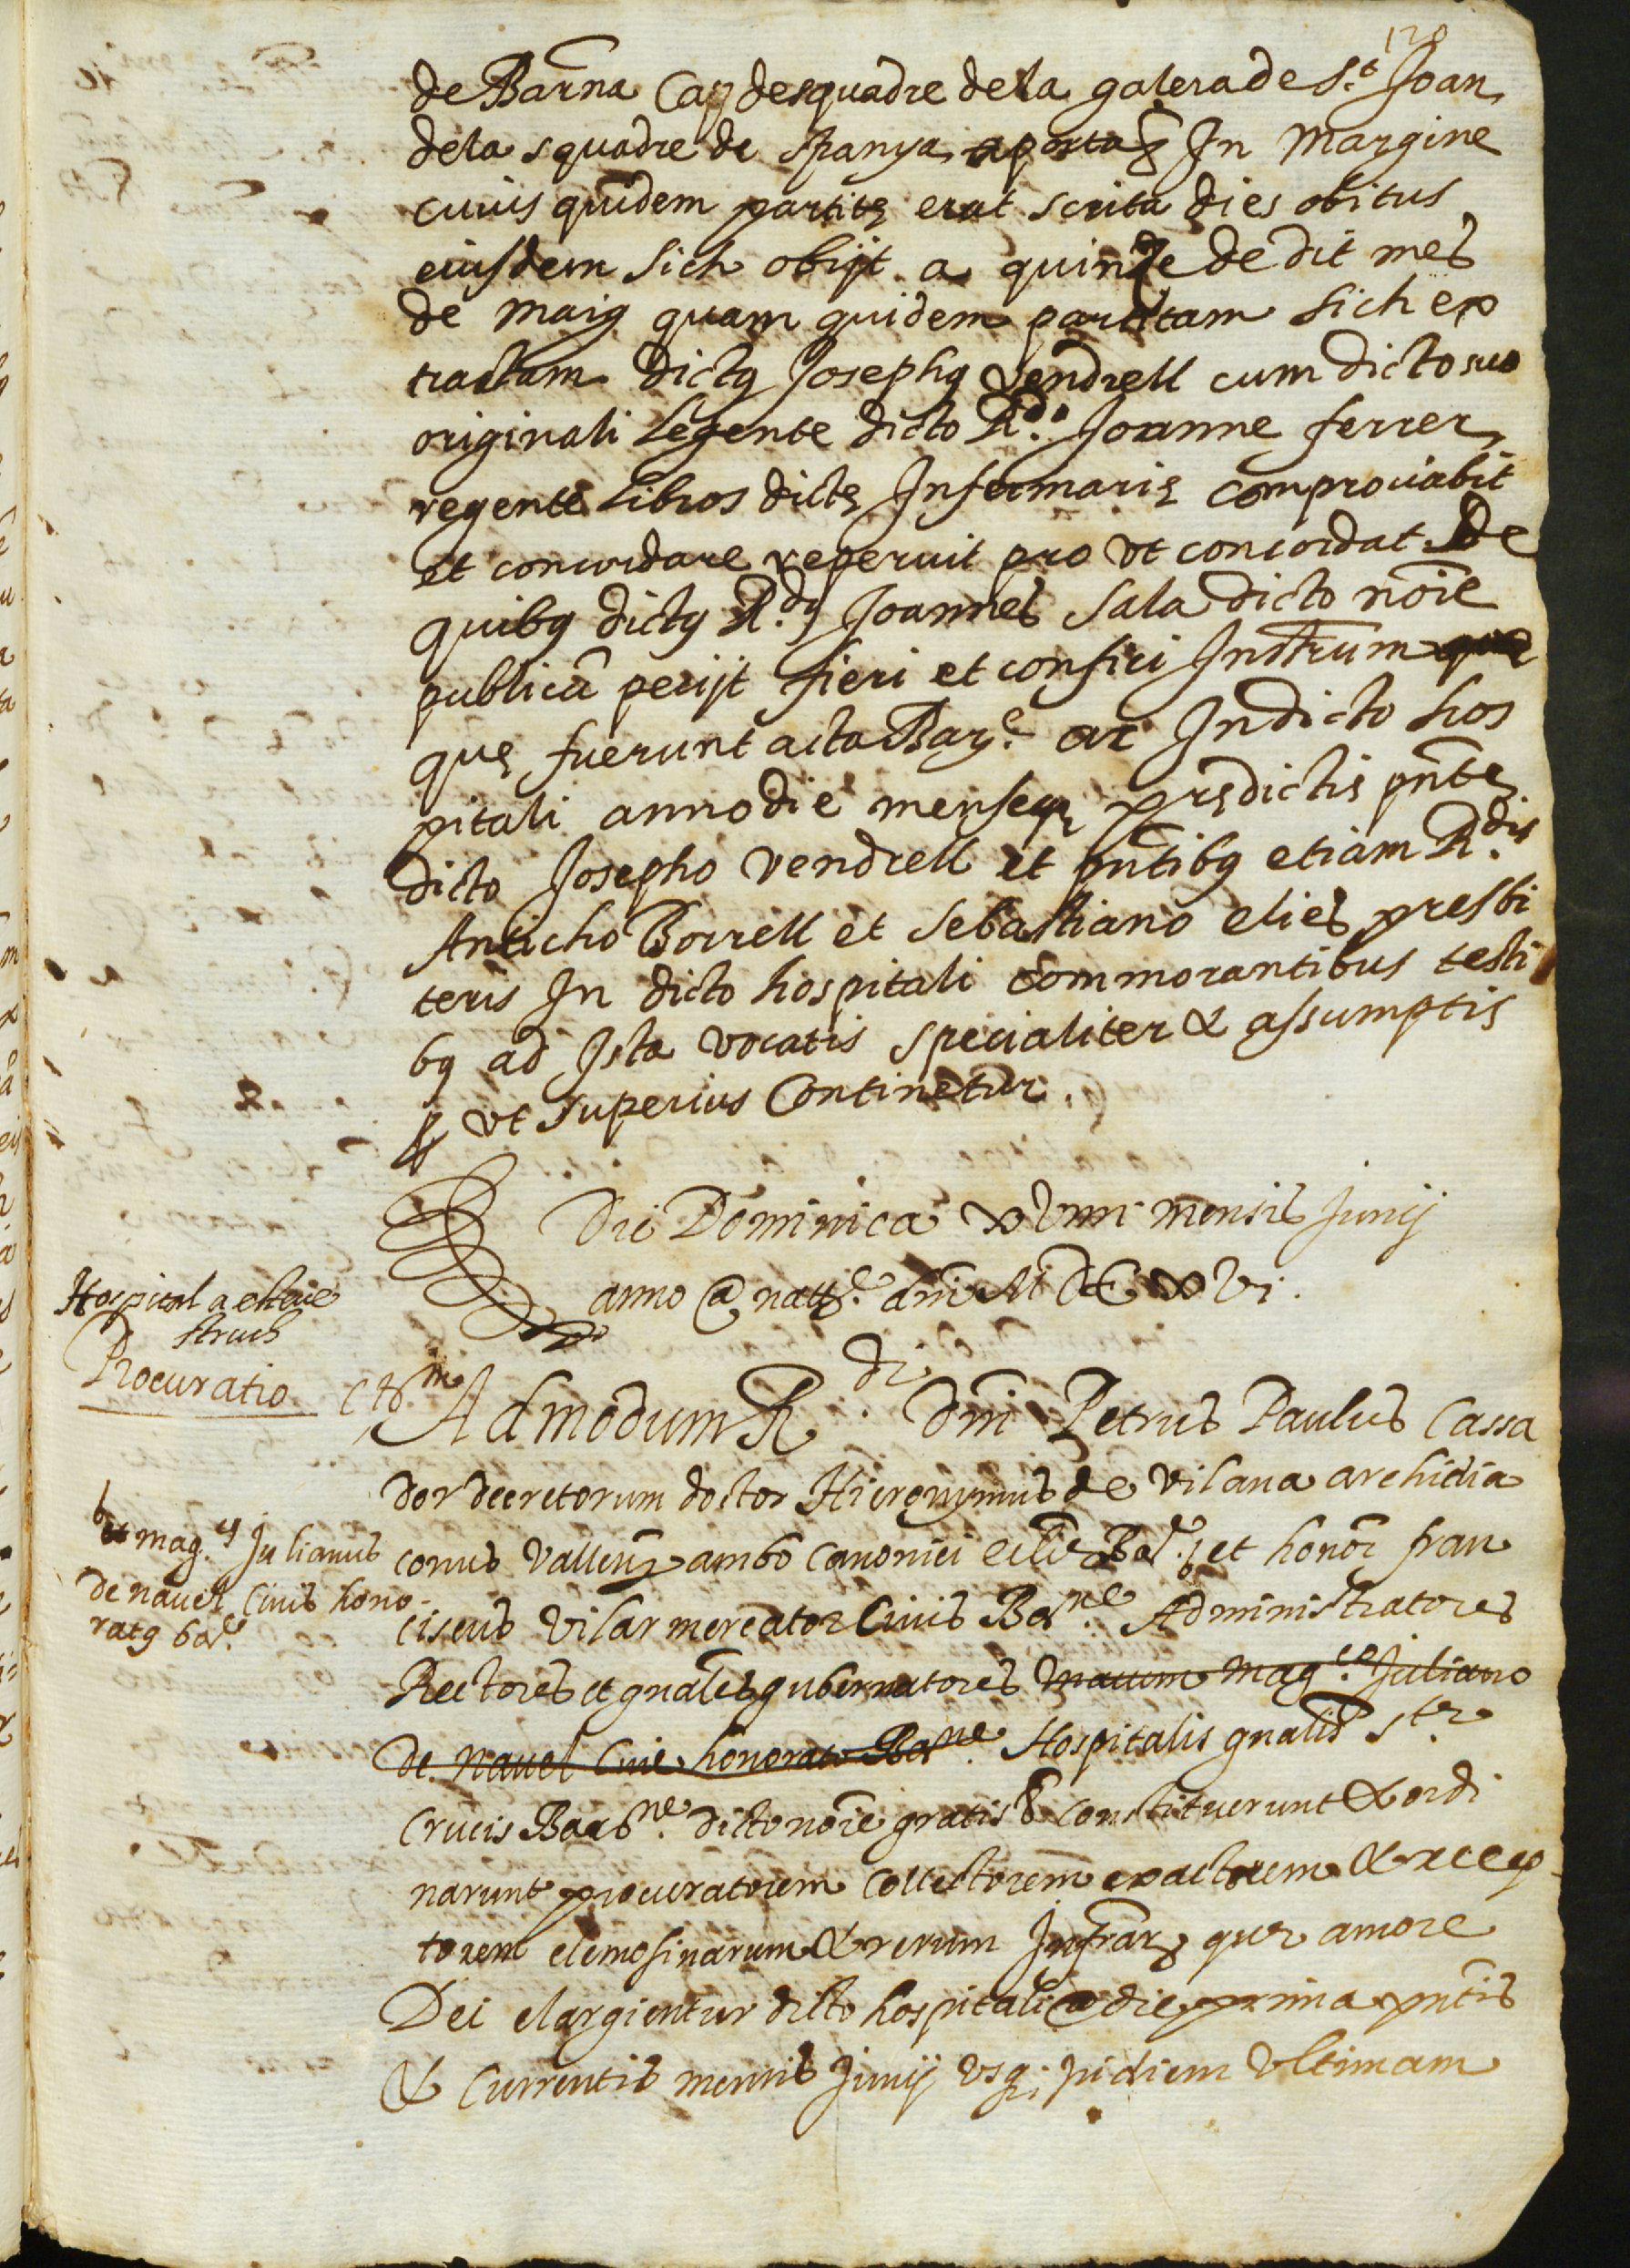 128
de Barna Cap desquadre dela galera de S.t Joan
dela squadre de Spanya aporta In Margine
cuius quidem partitę erat scrita dies obitus
eiusdem Sich obijt a quinze de dit mes
de maig quam quidem partitam sich ex
tractam dictus Josephus Vendrell cum dicto suo
originali legente dicto R.do Joanne ferrer
regente Libros dictę Infirmarię comprovabit
et concordare reperuit pro ut concordat De
quibus dictus R.dus Joannes Sala dicto noīe
publicū petijt fieri et confici Instrum
quę fuerunt acta Bar.e ac In dicto hos
pitali anno die menseq; prędictis pn̄te
dicto Josepho Vendrell et pn̄tibus etiam R.dis
Anticho Borrell et Sebastiano elies presbi
teris In dicto hospitali commorantibus testi
bus ad Ista vocatis specialiter & assumptis
ut superius Continetur.
Die Dominica xviiii mensis Junij
anno @ natt.e dn̄i M DC xvi.
Hospital a eloie
struch
Procuratio
Admodum R.di Dn̄i Petrus Paulus Cassa
dor decretorum doctor Hieronymus de Vilana archidia
conus Vallen̄ ambo canonici ecclīe Bar. et honor̄ fran
ciscus Vilar mercator Civis Bar.ne Administratores
et mag.cus Julianus
de navel Civis hono
ratus bar.e
Rectores et gn̄ales gubernatores mag.co Juliano
de Navel Cive honorato Bar.ne Hospitalis gn̄alis S.tę
Crucis Barne. dicto noīe gratis & constituerunt & ordi
narunt procuratorem collectorem exactorem & recep
torem elemosinarum & rerum Infrar̄ quę amore
Dei elargientur dicto hospitali a die prima pn̄tis
& Currentis mensis Junij usq; in diem Ultimam